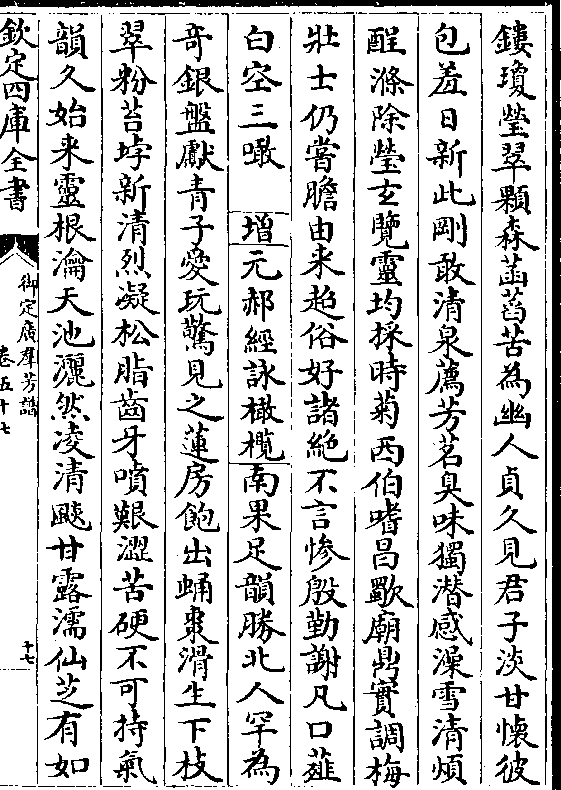 鏤瓊瑩翠顆森菡萏苦為幽人貞久見君子淡甘懷彼
包羞日新此剛敢清泉薦芳茗臭味獨潜感澡雪清煩
酲滌除瑩玄覽靈均採時菊西伯嗜昌歜廟鼎實調梅
壯士仍嘗膽由来超俗好諸絶不言慘殷勤謝凡口薤
白空三噉 増元郝經詠橄欖南果足韻勝北人罕為
竒銀盤獻青子愛玩驚見之蓮房飽出蛹棗滑生下枝
翠粉苔垺新清烈凝松脂齒牙噴艱澀苦硬不可持氣
韻久始来靈根瀹天池灑然凌清颷甘露濡仙芝有如
欽定四庫全書
御定廣羣芳譜
卷五十七
十七